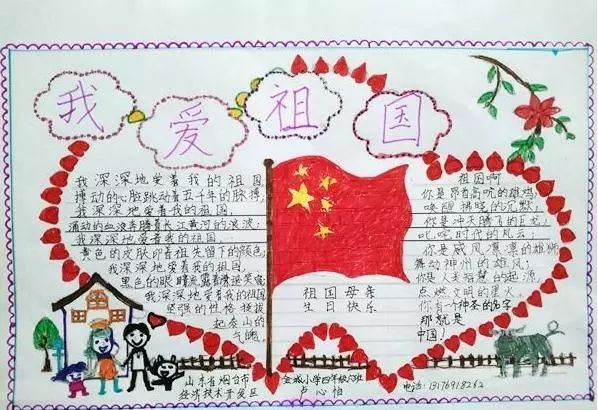 我爱祖国
我深深地爱着我的祖国
搏动的心脏跳动着五千年的脉搏
我深深地爱着我的祖国,
涌动的血液奔腾着长江黄河的浪波;
我深深地爱着我的祖国
黄色的皮肤印着祖先留下的颜色;
我深深地爱着我的祖国,
黑色的眼睛流露着
我深深地爱着我的祖国
坚强的性格挺拔
起泰山的
气魄
祖国母亲
生日快乐
祖国啊
你是昂首高吭的雄鸡
唤醒拂晓的沉默;
你是冲天腾飞的巨龙,
叱咤时代的风云;
你是威风凛凛的雄狮
舞动神州的雄风;
你是人类智慧的起源,
点燃文明的星火,
你有一个神圣的名字
那就是
中国!
山东省烟台市
经济技术开发区
金城小学四年级六班
卢心怡
电话:13176918262